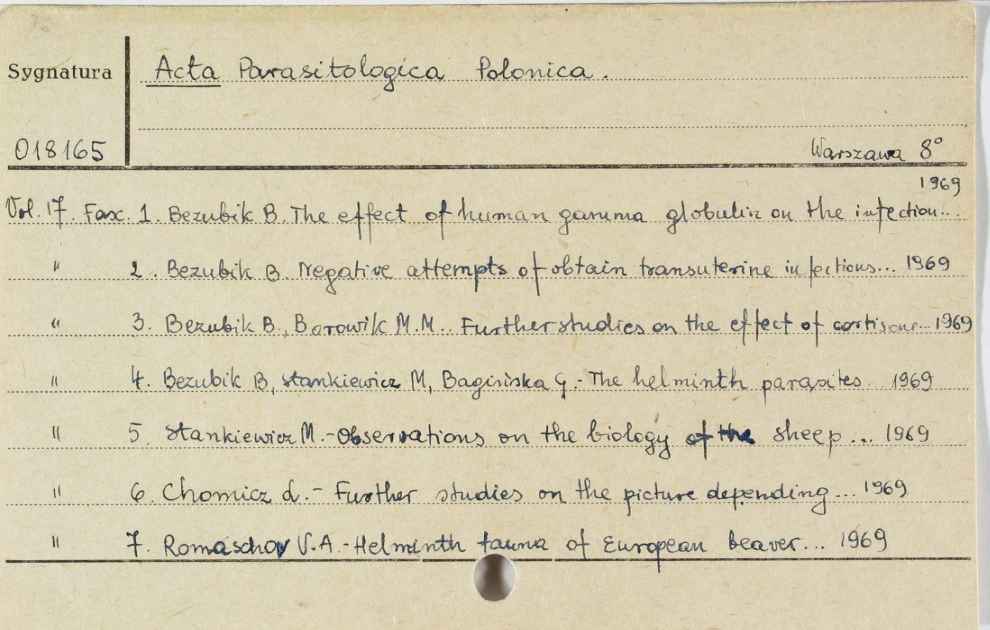 Sygnatura
Acta Parasitologica Polonica.
018165
Warszawa 8°
1969
Vol. 17. Fasc. 1. Bezubik B. The effect of human gamma globulin on the infection...
" 2. Bezubik B. Negative attempts of obtain transuterine infections... 1969
" 3. Bezubik B., Borowik M.M. Further studies on the effect of cortisone... 1969
" 4. Bezubik B, Stankiewicz M, Bagińska G.- The helminth parasites... 1969
" 5. Stankiewicz M.-Observations on the biology of the sheep... 1969
" 6. Chomicz L.- Further studies on the picture depending... 1969
" 7. Romaschov V.A.-Helminth fauna of European beaver... 1969